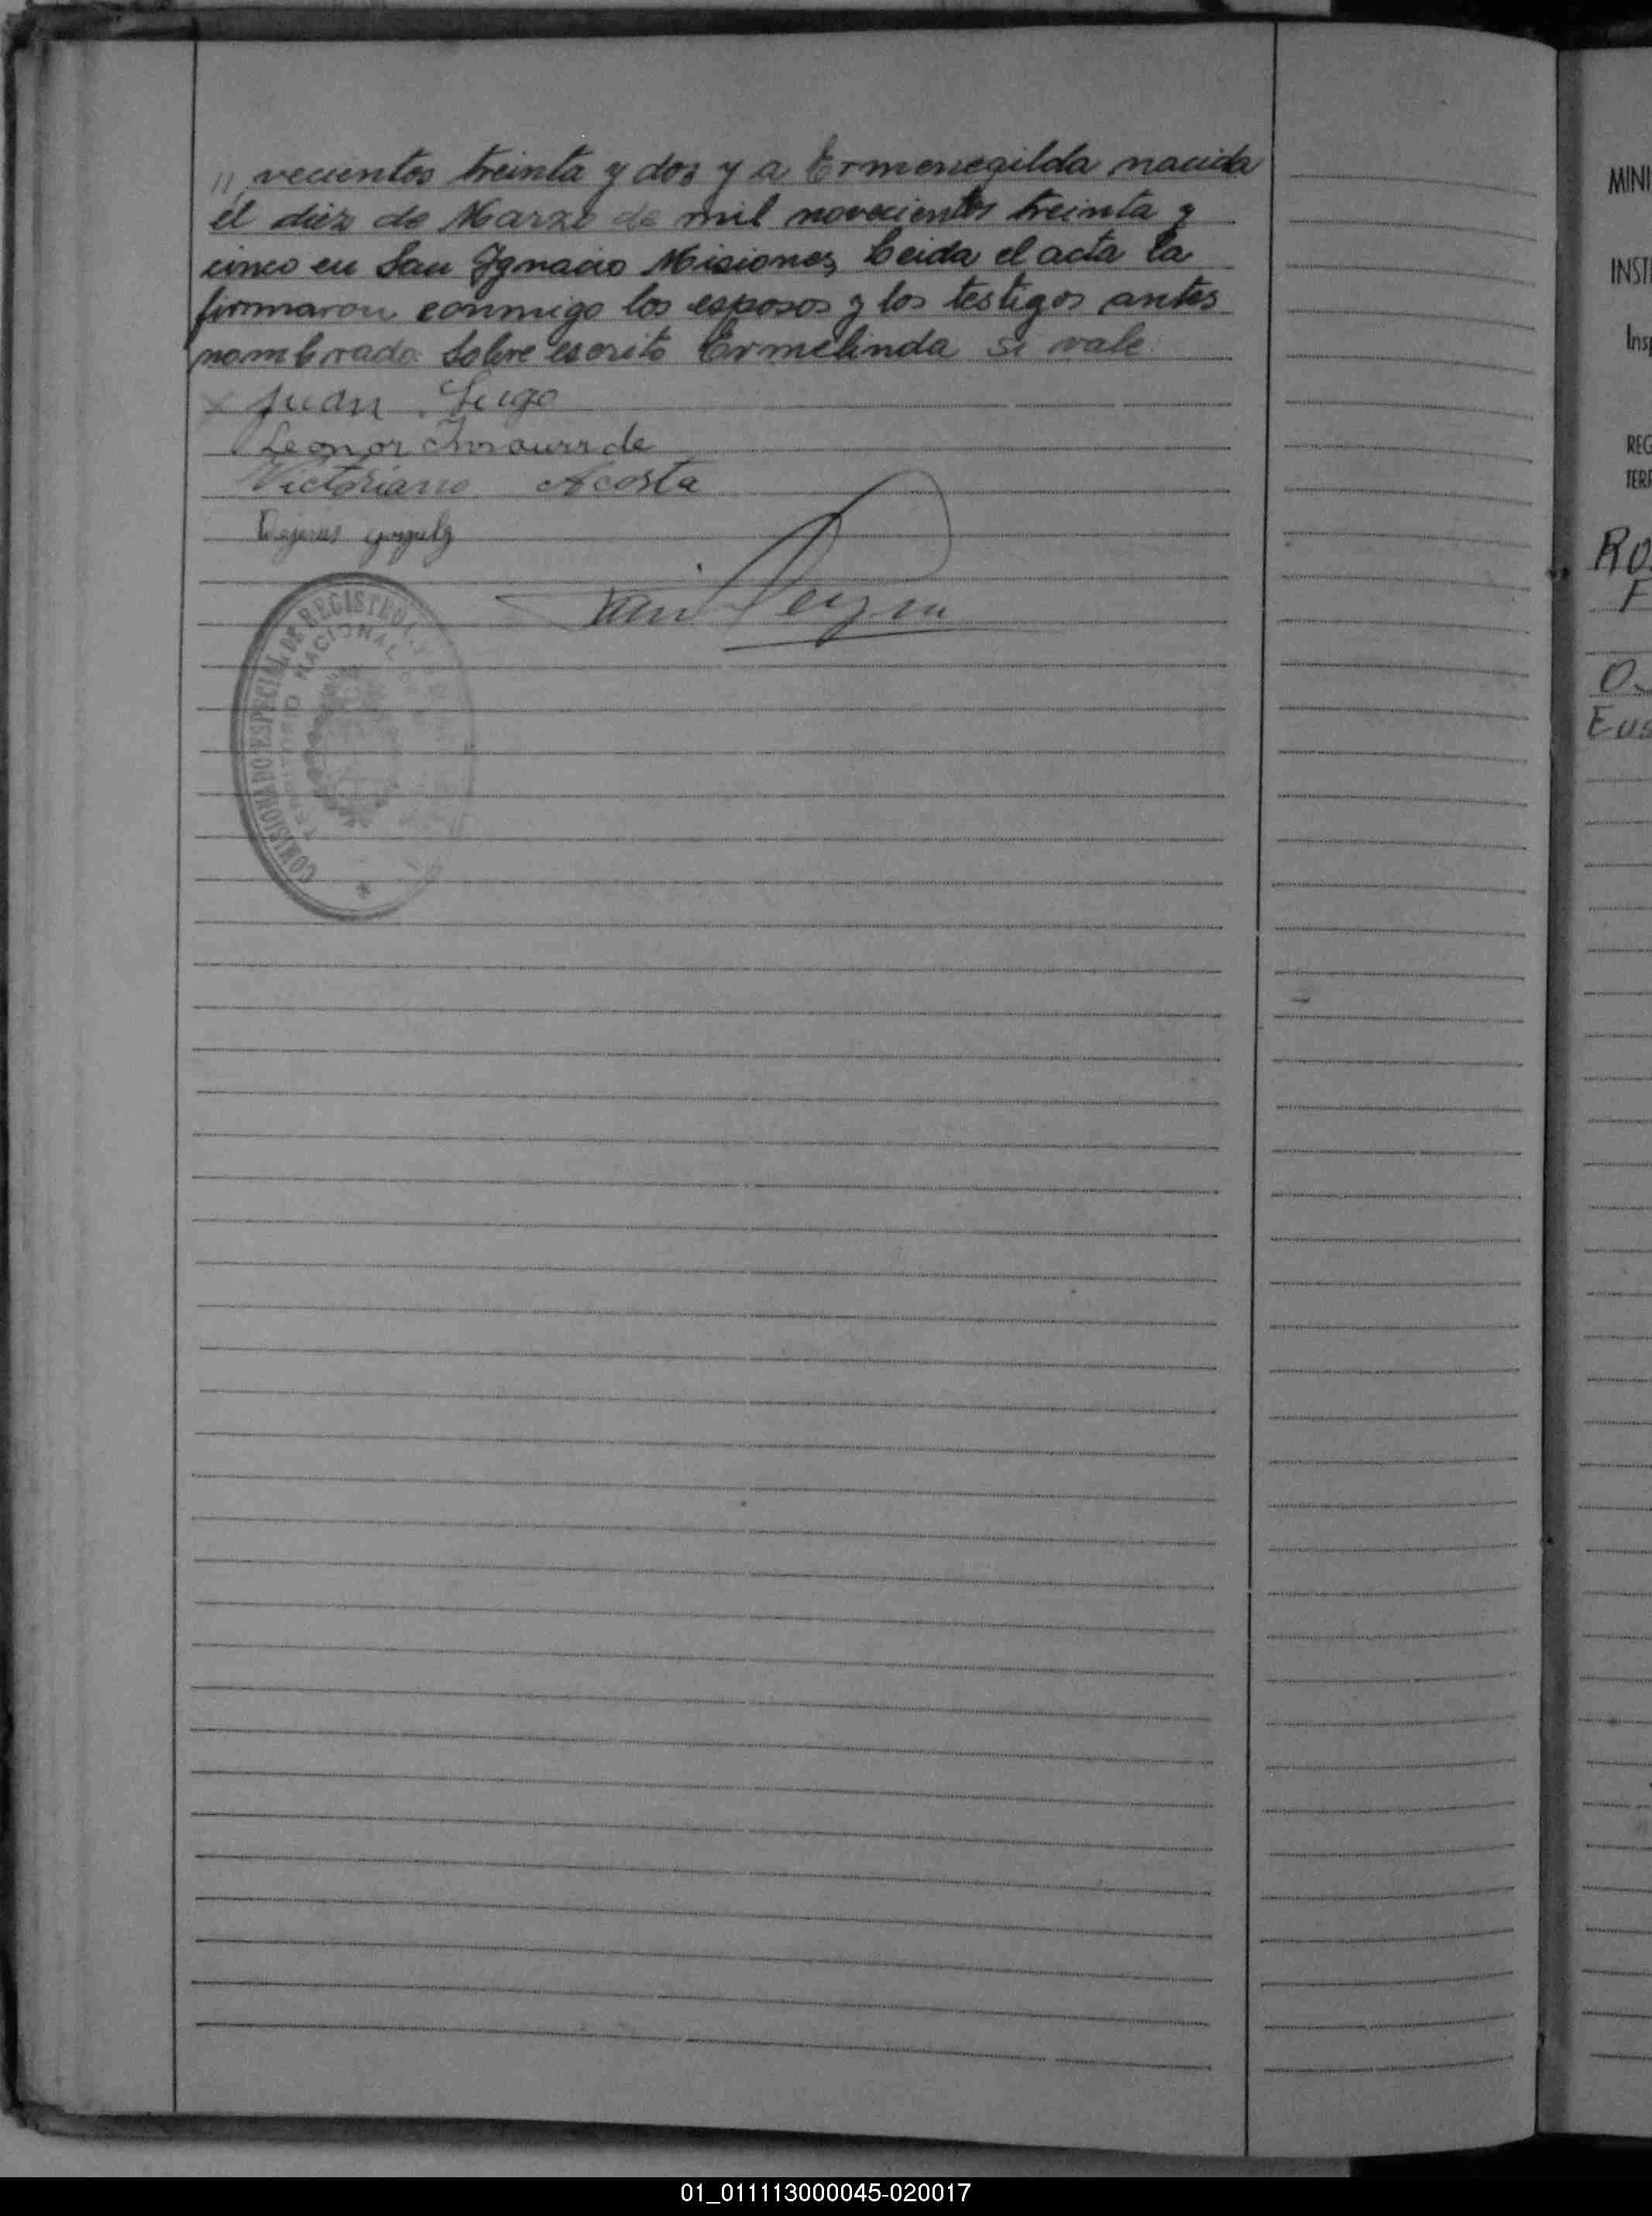 // vecientos treinta y dos y a Ermenegilda nacida
el diez de Marzo de mil novecientos treinta y
cinco en San Ignacio Misiones, Leida el acta la
firmaron conmigo los esposos y los testigos antes
nombrado. Sobre escrito Ermelinda Si vale.
x Juan Lugo
Leonor
Victoriano Acosta
COMISIONADO ESPECIAL DE REGISTRO
TERRITORIO NACIONAL DE
MINI
INSTI
Insp
REG
TERR
RO
F
O
Eus
01_011113000045-020017